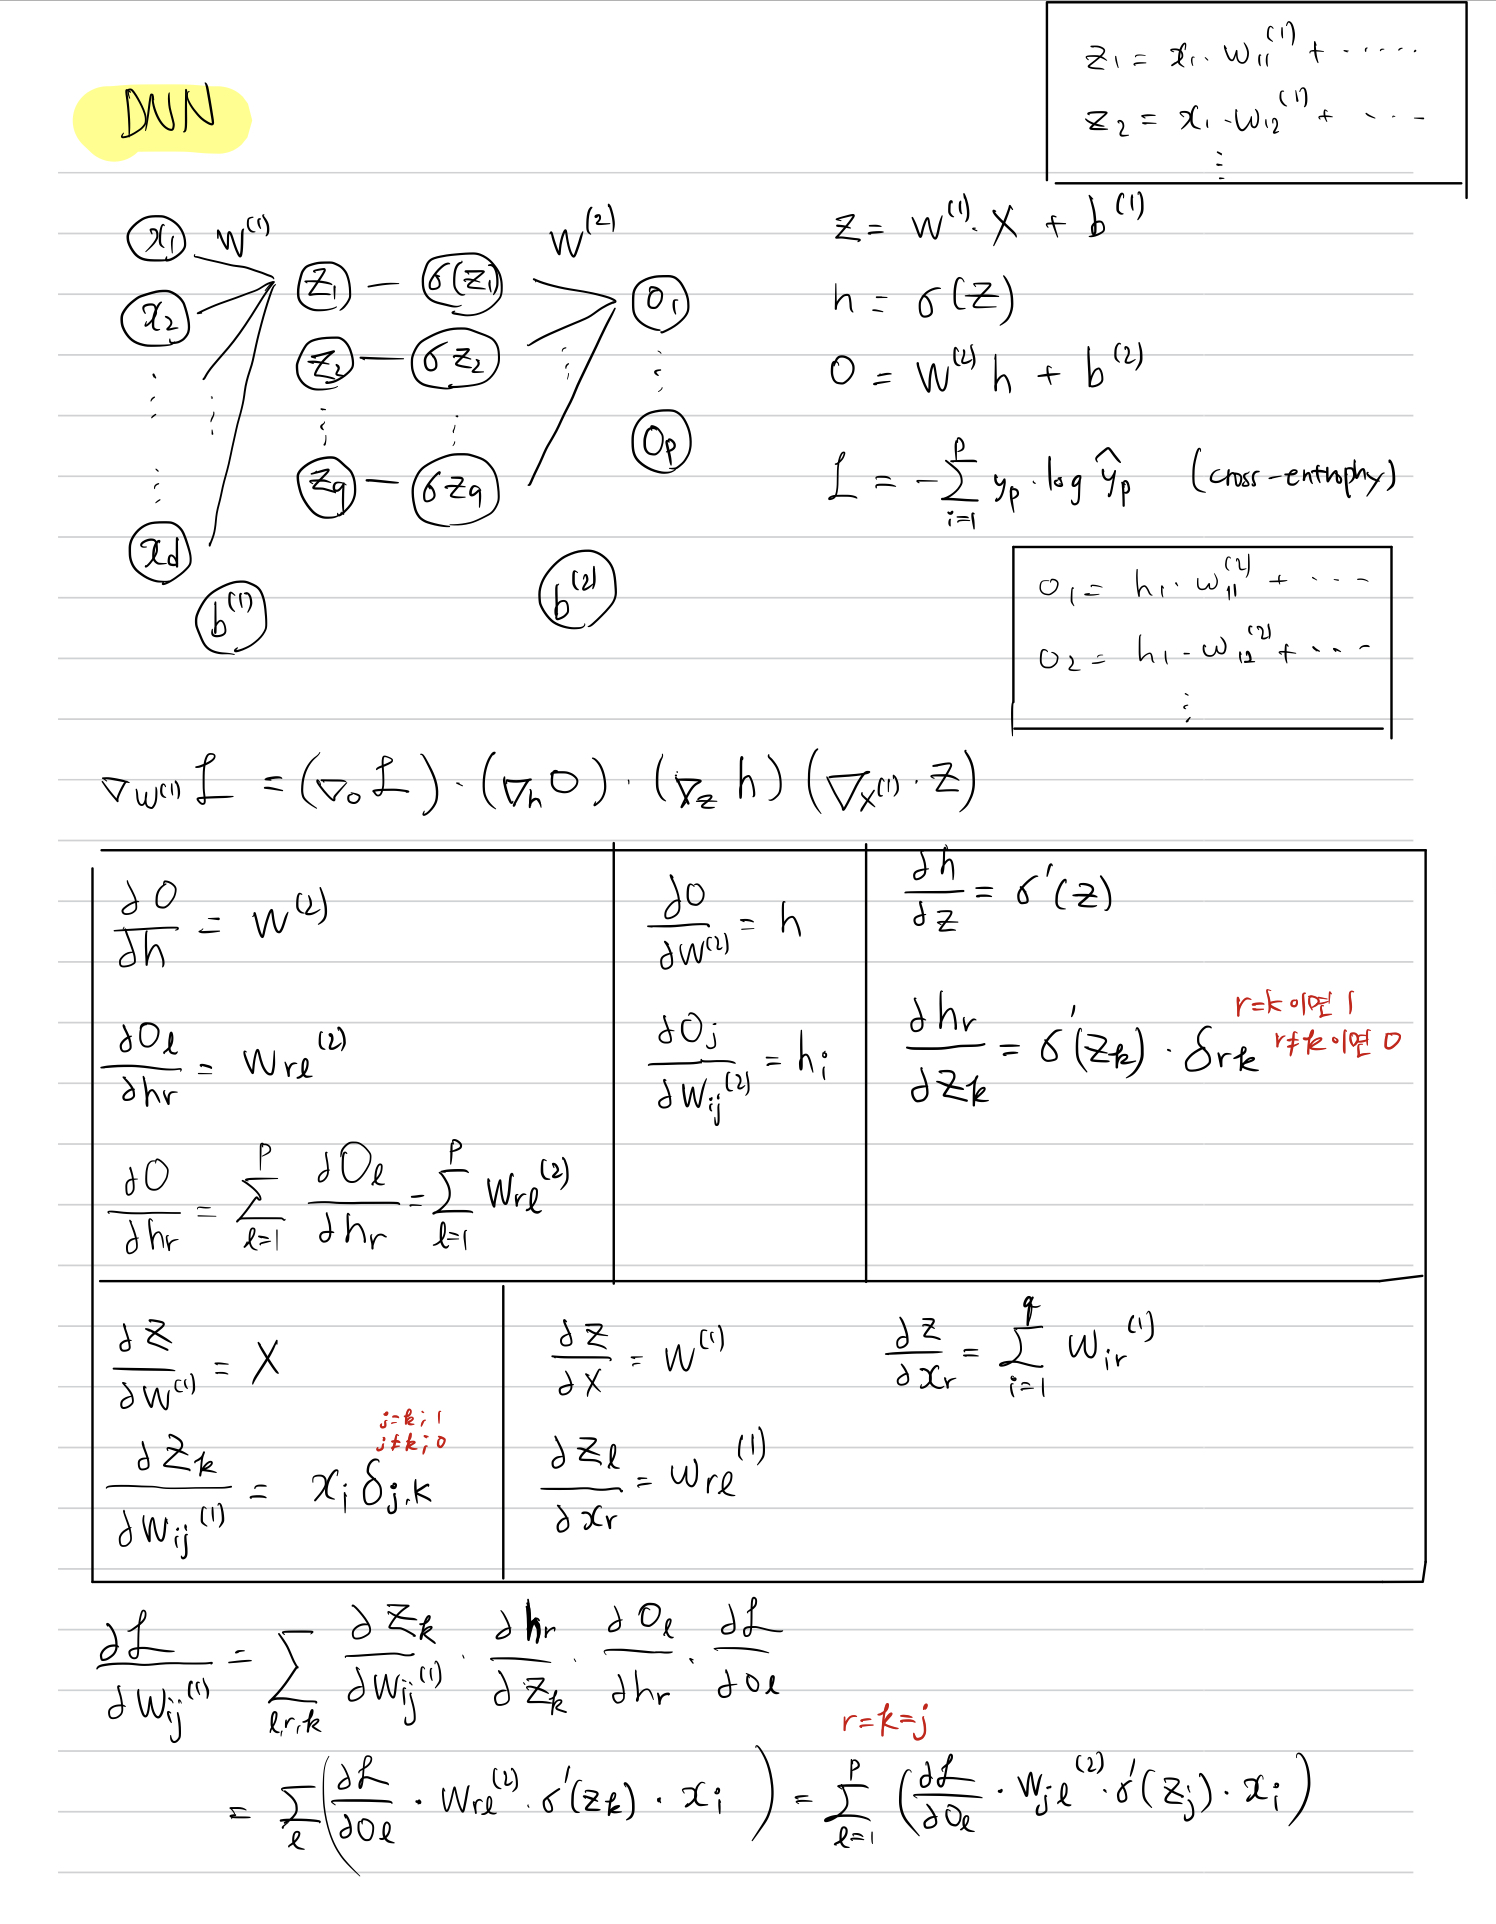 z₁ = x₁ · w₁₁⁽¹⁾ + ·····
z₂ = x₁ · w₁₂⁽¹⁾ + ····
⋮
DNN
x₁ W⁽¹⁾ z₁ σ(z₁) W⁽²⁾ O₁
x₂ z₂ σz₂
⋮ ⋮ ⋮ ⋮ O_p
z_q σz_q
x_d
b⁽¹⁾ b⁽²⁾
z = W⁽¹⁾· X + b⁽¹⁾
h = σ(z)
O = W⁽²⁾ h + b⁽²⁾
L = -∑_{i=1}^{p} y_p · log ŷ_p (cross-entrophy)
o₁ = h₁ · w₁₁⁽²⁾ + ····
o₂ = h₁ · w₁₂⁽²⁾ + ····
⋮
∇_{W⁽¹⁾} L = (∇_o L) · (∇_h O) · (∇_z h) (∇_{X⁽¹⁾} · z)
∂O/∂h = W⁽²⁾
∂O_ℓ/∂h_r = W_{rℓ}⁽²⁾
∂O/∂h_r = ∑_{ℓ=1}^{p} ∂O_ℓ/∂h_r = ∑_{ℓ=1}^{p} W_{rℓ}⁽²⁾
∂O/∂W⁽²⁾ = h
∂O_j/∂W_{ij}⁽²⁾ = h_i
∂h/∂z = σ'(z)
∂h_r/∂z_k = σ'(z_k) · δ_{rk}
r=k 이면 1
r≠k 이면 0
∂z/∂W⁽¹⁾ = X
∂z_k/∂W_{ij}⁽¹⁾ = x_i δ_{j,k}
j=k ; 1
j≠k ; 0
∂z/∂X = W⁽¹⁾
∂z_ℓ/∂x_r = W_{rℓ}⁽¹⁾
∂z/∂x_r = ∑_{i=1}^{q} W_{ir}⁽¹⁾
∂L/∂W_{ij}⁽¹⁾ = ∑_{ℓ,r,k} ∂z_k/∂W_{ij}⁽¹⁾ · ∂h_r/∂z_k · ∂O_ℓ/∂h_r · ∂L/∂o_ℓ
r=k=j
= ∑_ℓ (∂L/∂O_ℓ · W_{rℓ}⁽²⁾ · σ'(z_k) · x_i) = ∑_{ℓ=1}^{p} (∂L/∂O_ℓ · W_{jℓ}⁽²⁾ · σ'(z_j) · x_i)